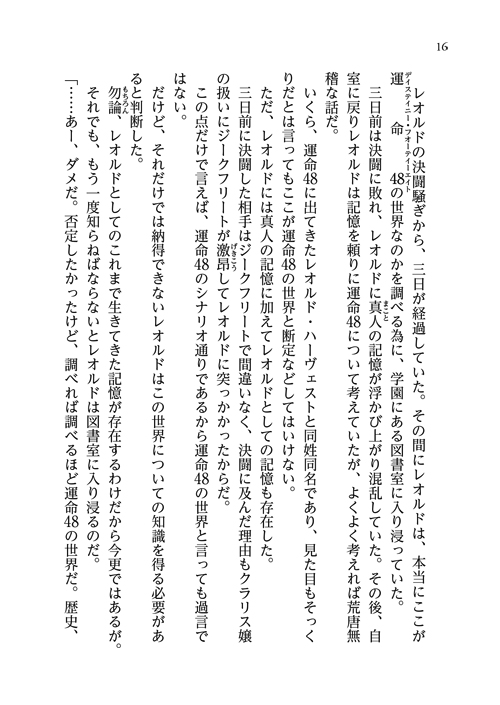 16
レオルドの決闘騒ぎから、三日が経過していた。その間にレオルドは、本当にここが
運命48の世界なのかを調べる為に、学園にある図書室に入り浸っていた。
ディスティニー・フォーティーエイト
三日前は決闘に敗れ、レオルドに真人の記憶が浮かび上がり混乱していた。その後、自
まこと
室に戻りレオルドは記憶を頼りに運命48について考えていたが、よくよく考えれば荒唐無
稽な話だ。
いくら、運命48に出てきたレオルド・ハーヴェストと同姓同名であり、見た目もそっく
りだとは言ってもここが運命48の世界と断定などしてはいけない。
ただ、レオルドには真人の記憶に加えてレオルドとしての記憶も存在した。
三日前に決闘した相手はジークフリートで間違いなく、決闘に及んだ理由もクラリス嬢
の扱いにジークフリートが激昂してレオルドに突っかかったからだ。
げきこう
この点だけで言えば、運命48のシナリオ通りであるから運命48の世界と言っても過言で
はない。
だけど、それだけでは納得できないレオルドはこの世界についての知識を得る必要があ
ると判断した。
勿論、レオルドとしてのこれまで生きてきた記憶が存在するわけだから今更ではあるが。
もちろん
それでも、もう一度知らねばならないとレオルドは図書室に入り浸るのだ。
「……あー、ダメだ。否定したかったけど、調べれば調べるほど運命48の世界だ。歴史、